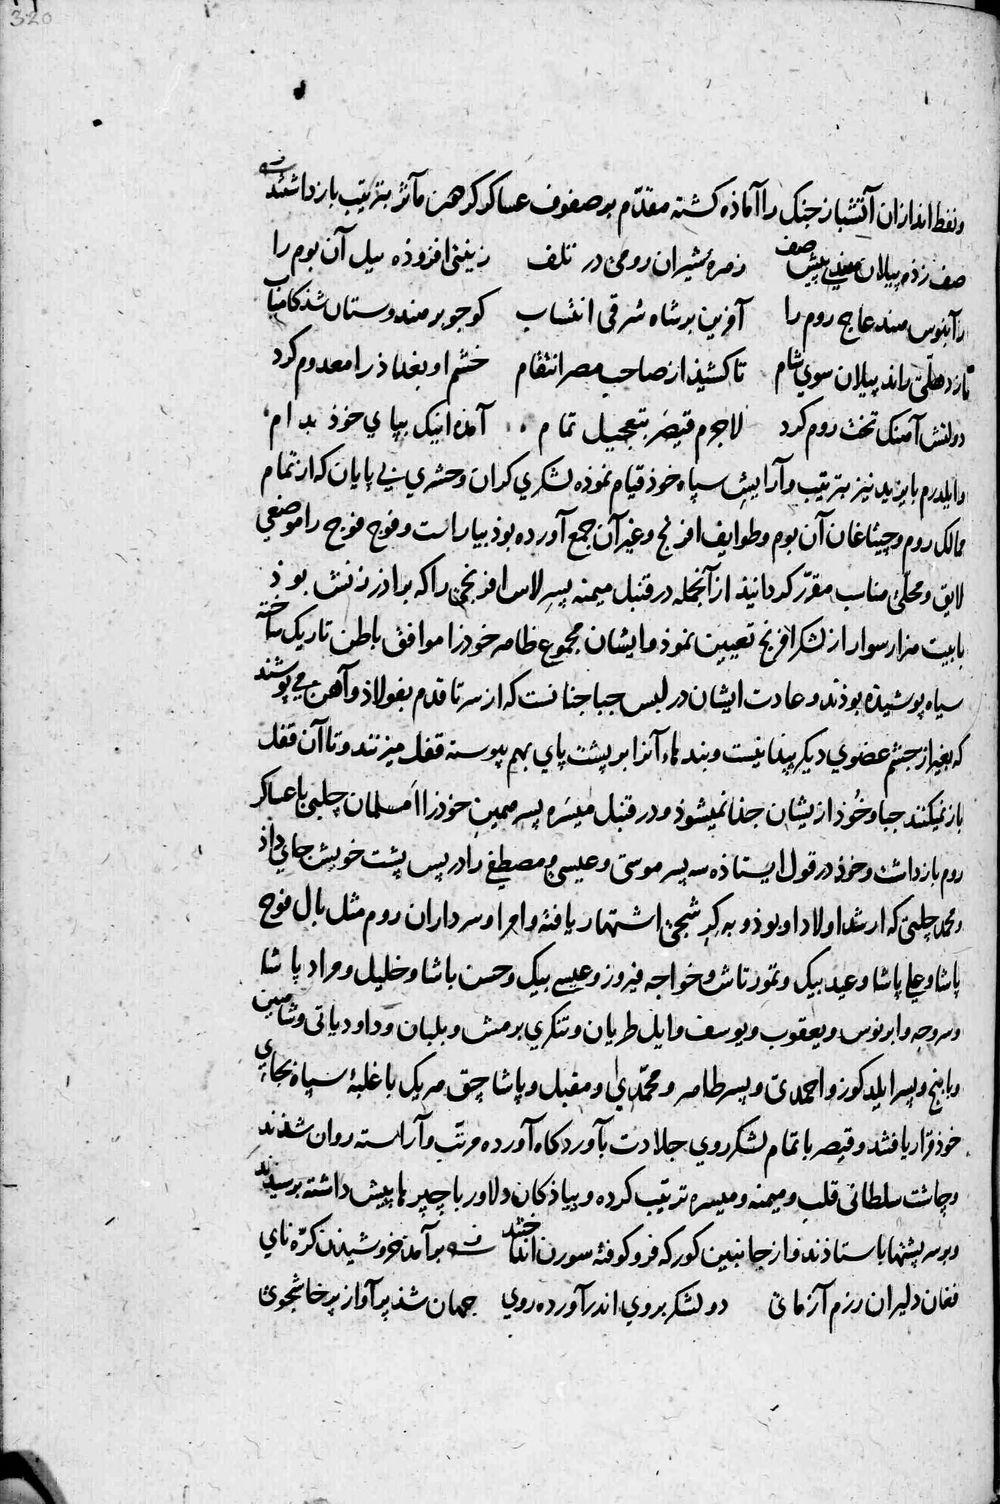 320
و نفط اندازان آتشباز جنک را آماده کشته مقدّم بر صفوف عساکر کردهن مآثر بترتیب بازداشتند
صف زده پیلان پیش صف زهره شیران رومی در تلف زینتی افزوذه نیل آن بوم را
زآبنوس هند عاج روم را آفرین بر شاه شرقی انتساب کو جو بر هندوستان شذ کامیاب
تا ز دهلی راند پیلان سوی شام تا کشیذ از صاحب مصر انتقام خشم او بغداذ را معدوم کرد
دولتش آهنک تخت روم کرد لاجرم قیصر بتعجیل تمام آمذ اینک بپای خوذ بدام
و ایلدرم بایزید نیز بترتیب و آرایش سپاه خوذ قیام نموذه لشکری کران و حشری بی پایان که از تمام
ممالک روم و چیتاغان آن بوم و طوایف افرنج و غیر آن جمع آورده بوذ بیاراست و فوج فوج را موضعی
لایق و محلّی مناسب مقرّر کردانیذ از آنجمله در قنبل میمنه پسر لاس افرنجی را که براذر زنش بوذ
با بیست هزار سوار از لشکر افرنج تعیین نموذ و ایشان مجموع ظاهر خوذ را موافق باطن تاریک ساخته
سیاه پوشیذه بوذند و عادت ایشان در لبس جبا جنانست که از سر تا قدم بفولاذ و آهن می پوشند
که بغیر از جشم عضوی دیکر پیذا نیست و بندهاء آنرا بر پشت پای بهم پیوسته قفل میزنند و تا آن قفل
باز نمیکنند جبا و خوذ از یشان جذا نمیشوذ و در قنبل میسره پسر مهین خوذ را امسلمان چلبی با عساکر
روم بازداشت و خوذ در قول ایستاذه سه پسر موسی و عیسی و مصطفی را در پس پشت خویش جای داذ
و محمد چلبی که ارشد اولاد او بوذ و به کرشجی اشتهار یافته و امرا و سرداران روم مثل بال فوج
پاشا و علی پاشا و عید بیک و تمورتاش و خواجه فیروز و عیسی بیک و حسن باشا و خلیل و مراد پاشا
و سروجه و ابرنوس و یعقوب و یوسف و ایل طریان و تنکری برمش و بلبان و داود یاتی و شاهین
و بایزج و پسر ایلد کوز و احمدی و پسر طاهر و محمّدی و مقبل و پاشاچق هر یک با غلبۀ سپاه بجای
خوذ قرار یافتند و قیصر با تمام لشکر روی جلادت بآوردکاه آورده مرتّب و آراسته روان شذند
و جاشت سلطانی قلب و میمنه و میسره ترتیب کرده و پیاذکان دلاور با چپرها پیش داشته برسیذند
و بر سر پشتها باستاذند و از جانبین کورکه فرو کوفته سورن انداختند برآمذ خروشیدن کرّه نای
فغان دلیران رزم آزمای دو لشکر بروی اندر آورده روی جهان شذ پر آواز پرخاشجوی